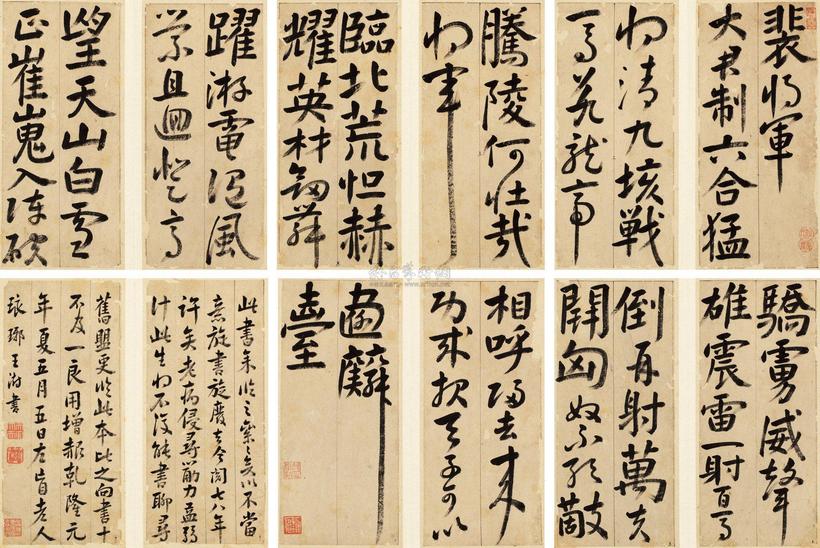 裴将軍
大君制六合猛
将清九垓戰
馬若龍虎
騰陵何壯哉
将軍
臨北荒怛赫
耀英材劒舞
躍游電随風
縈且迴登高
望天山白雪
正崔嵬入陣破
驕虜威聲
雄震雷一射百馬
倒再射萬夫
開匈奴不敢敵
相呼歸去来
功成報天子可以
畫麟
臺
此書余临之矣以不當
意旋書旋廢去今閱七八年
許矣老病侵尋筋力益弱
計此生将不復能書聊尋
舊盟更临此本比之向書十
不及一良用增赧乾隆元
年夏五月五日左盲老人
琅琊王澍書